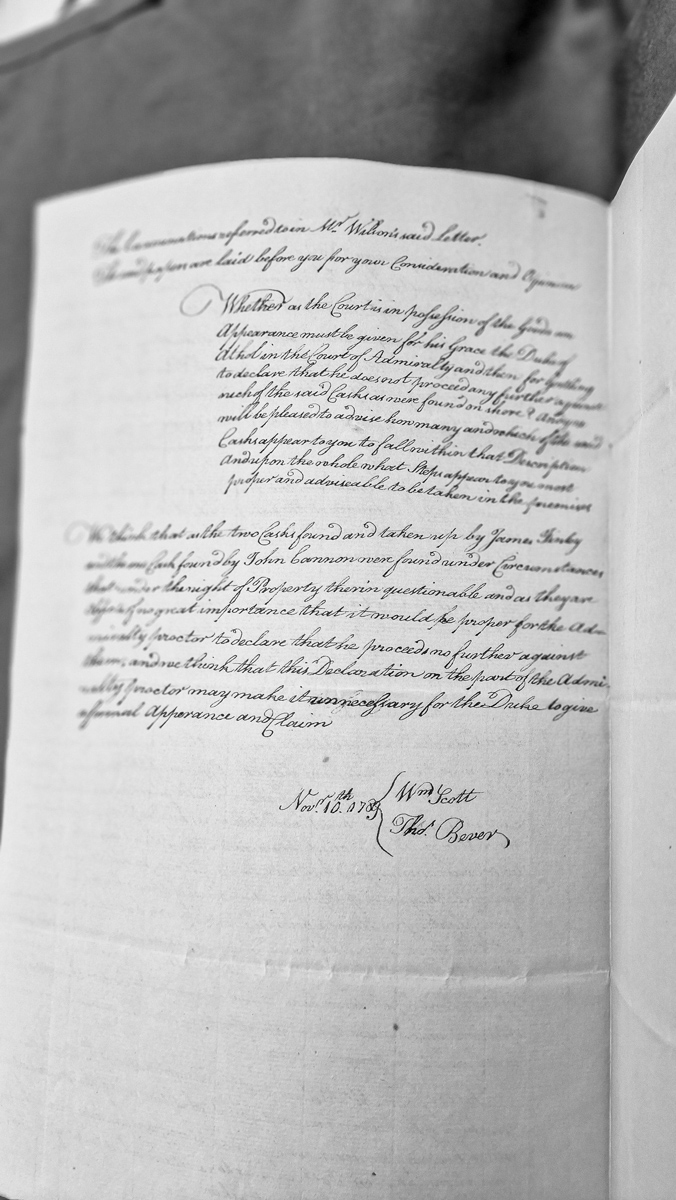 The Examinations referred to in Mr. Wilson's said Letter.
The said papers are laid before you for your Consideration and Opinion
Whether as the Court is in possession of the Goods an
Appearance must be given for his Grace the Duke of
Athol in the Court of Admiralty and then for getting
to declare that he does not proceed any further against
such of the said Casks as were found on shore? And you
will be pleased to advise how many and which of the said
Casks appear to you to fall within that Description
And upon the whole what Steps appear to you most
proper and adviseable to be taken in the premises
We think that as the two Casks found and taken up by James
and the one Cask found by John Cannon were found under Circumstances
that render the right of Property therin questionable and as they are
of no great importance that it would be proper for the Ad-
miralty proctor to declare that he proceeds no further against
them, and we think that this Declaration on the part of the Admi-
ralty proctor may make it unnecessary for the Duke to give
a formal Apperance and Claim
Novr. 10.th
Wm Scott
Thos. Bever